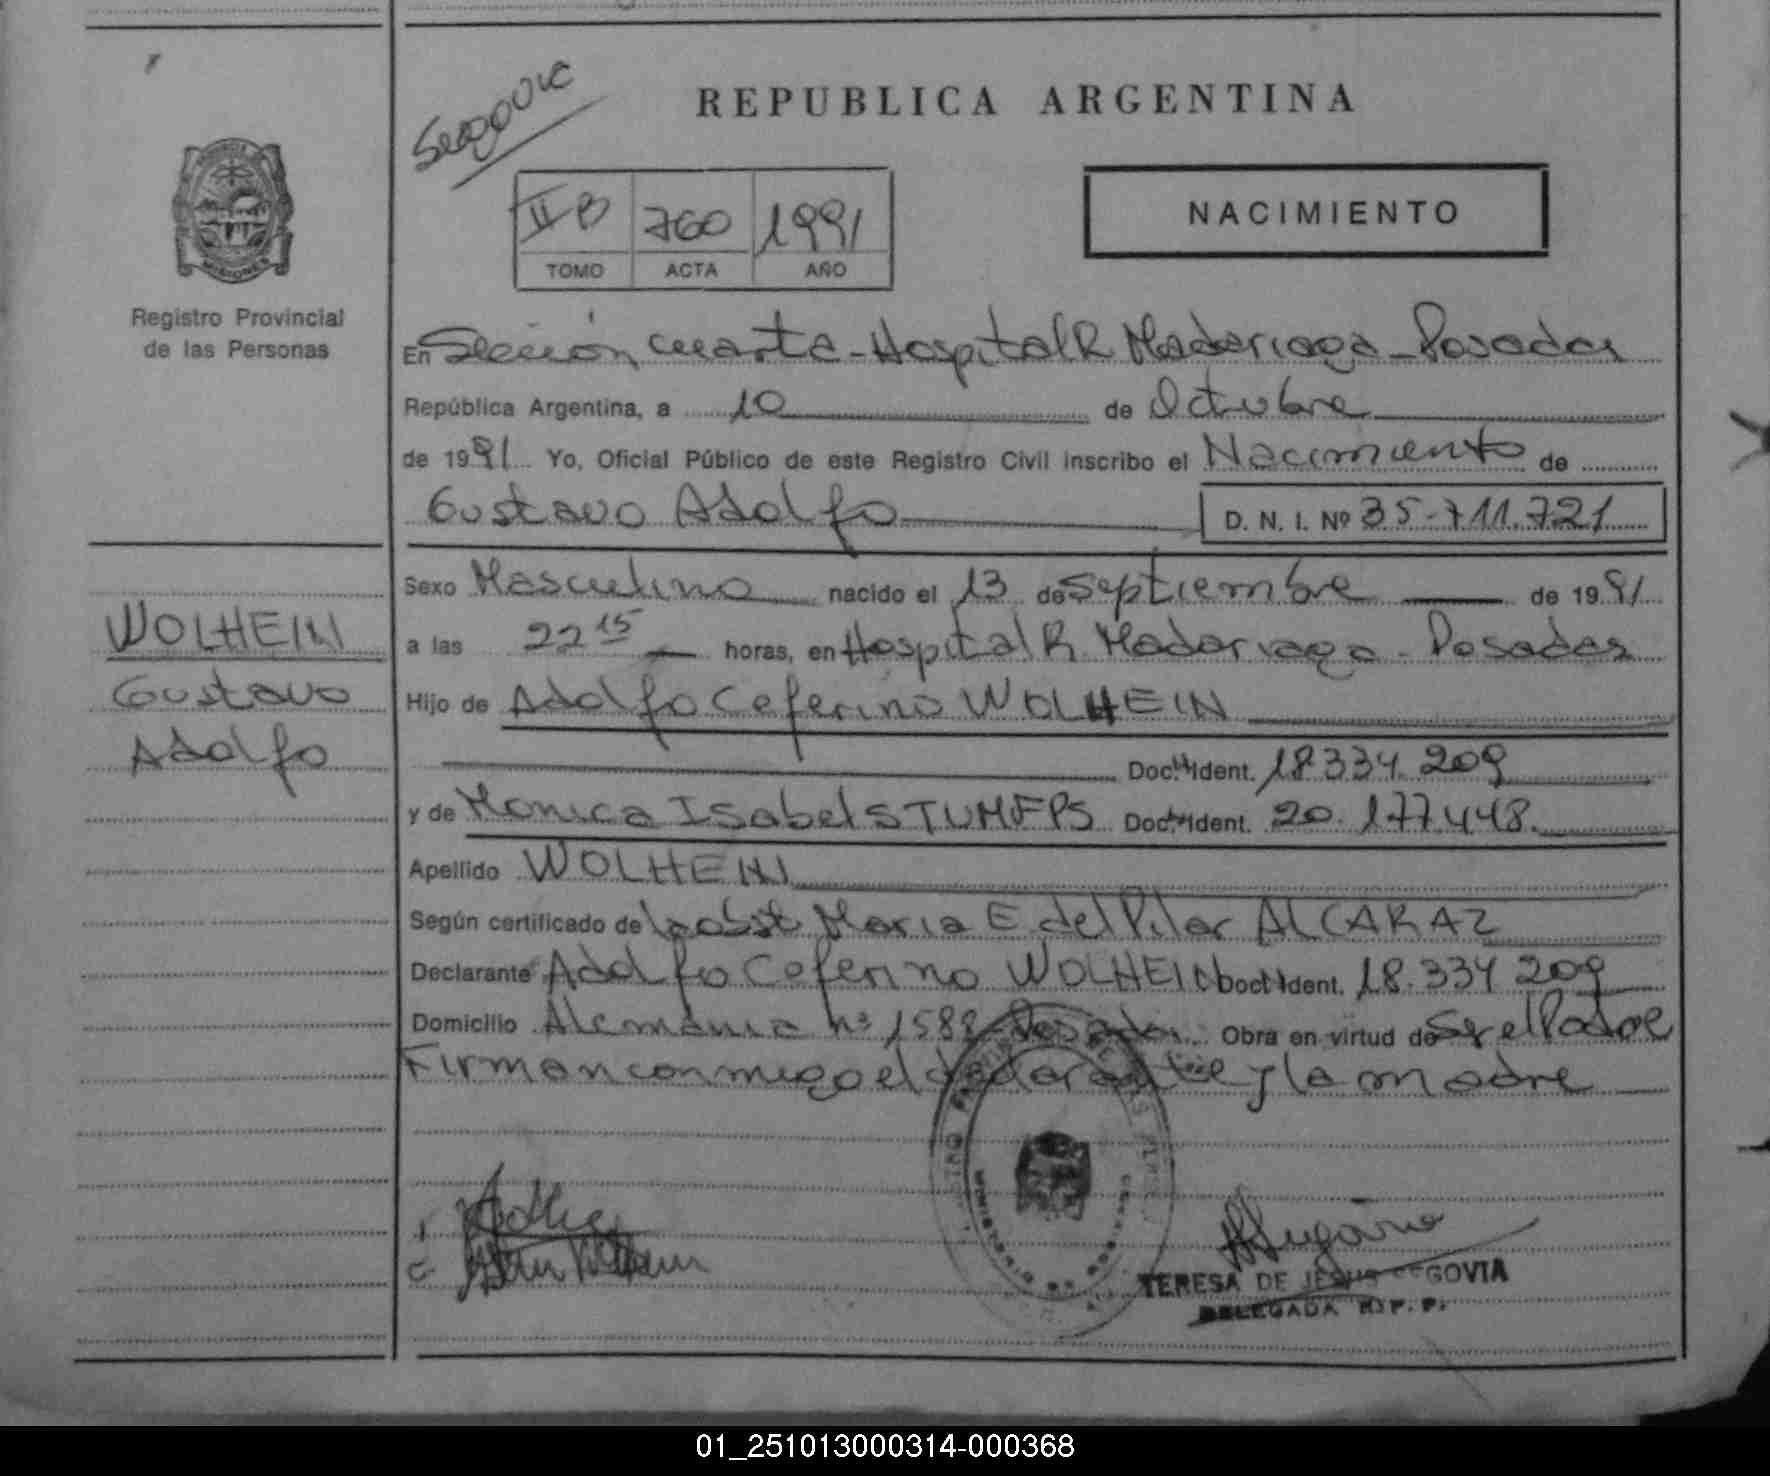 Segovia
REPUBLICA ARGENTINA
II B 760 1991
TOMO ACTA AÑO
NACIMIENTO
MISIONES
Registro Provincial
de las Personas
En Sección cuarta - Hospital R Madariaga - Posadas
República Argentina, a 10 de Octubre
de 1991 Yo, Oficial Público de este Registro Civil inscribo el Nacimiento de
Gustavo Adolfo
D. N. I. Nº 35-711.721
Sexo Masculino nacido el 13 de Septiembre de 1991
WOLHEIN
Gustavo
Adolfo
a las 22 15 horas, en Hospital R Madariaga - Posadas
Hijo de Adolfo Ceferino WOLHEIN
Doc. Ident. 18.334.209
y de Monica Isabel STUMFPS Doc. Ident. 20.177.448
Apellido WOLHEIN
Según certificado de la obst Maria E del Pilar ALCARAZ
Declarante Adolfo Ceferino WOLHEIN Doc. Ident. 18.334 209
Domicilio Alemania nº 1588 - Posadas. Obra en virtud de Ser el Padre
Firman conmigo el declarante y la madre
TERESA DE JESUS SEGOVIA
DELEGADA R. P. P.
01_251013000314-000368